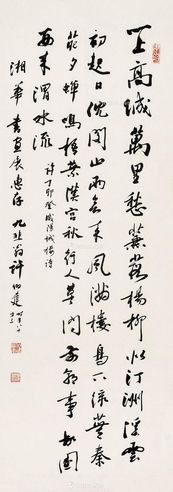 一上高城萬里愁蒹葭楊柳似汀洲溪雲
初起日沉閣山雨欲來風滿樓鳥下綠蕪秦
苑夕蟬鳴葉漢宮秋行人莫問前朝事故國
西來渭水流 許丁卯登咸陽城樓詩
湘華書畫展惠存 翁許伯建